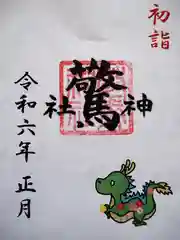 初詣
驚
神社
令和六年 正月